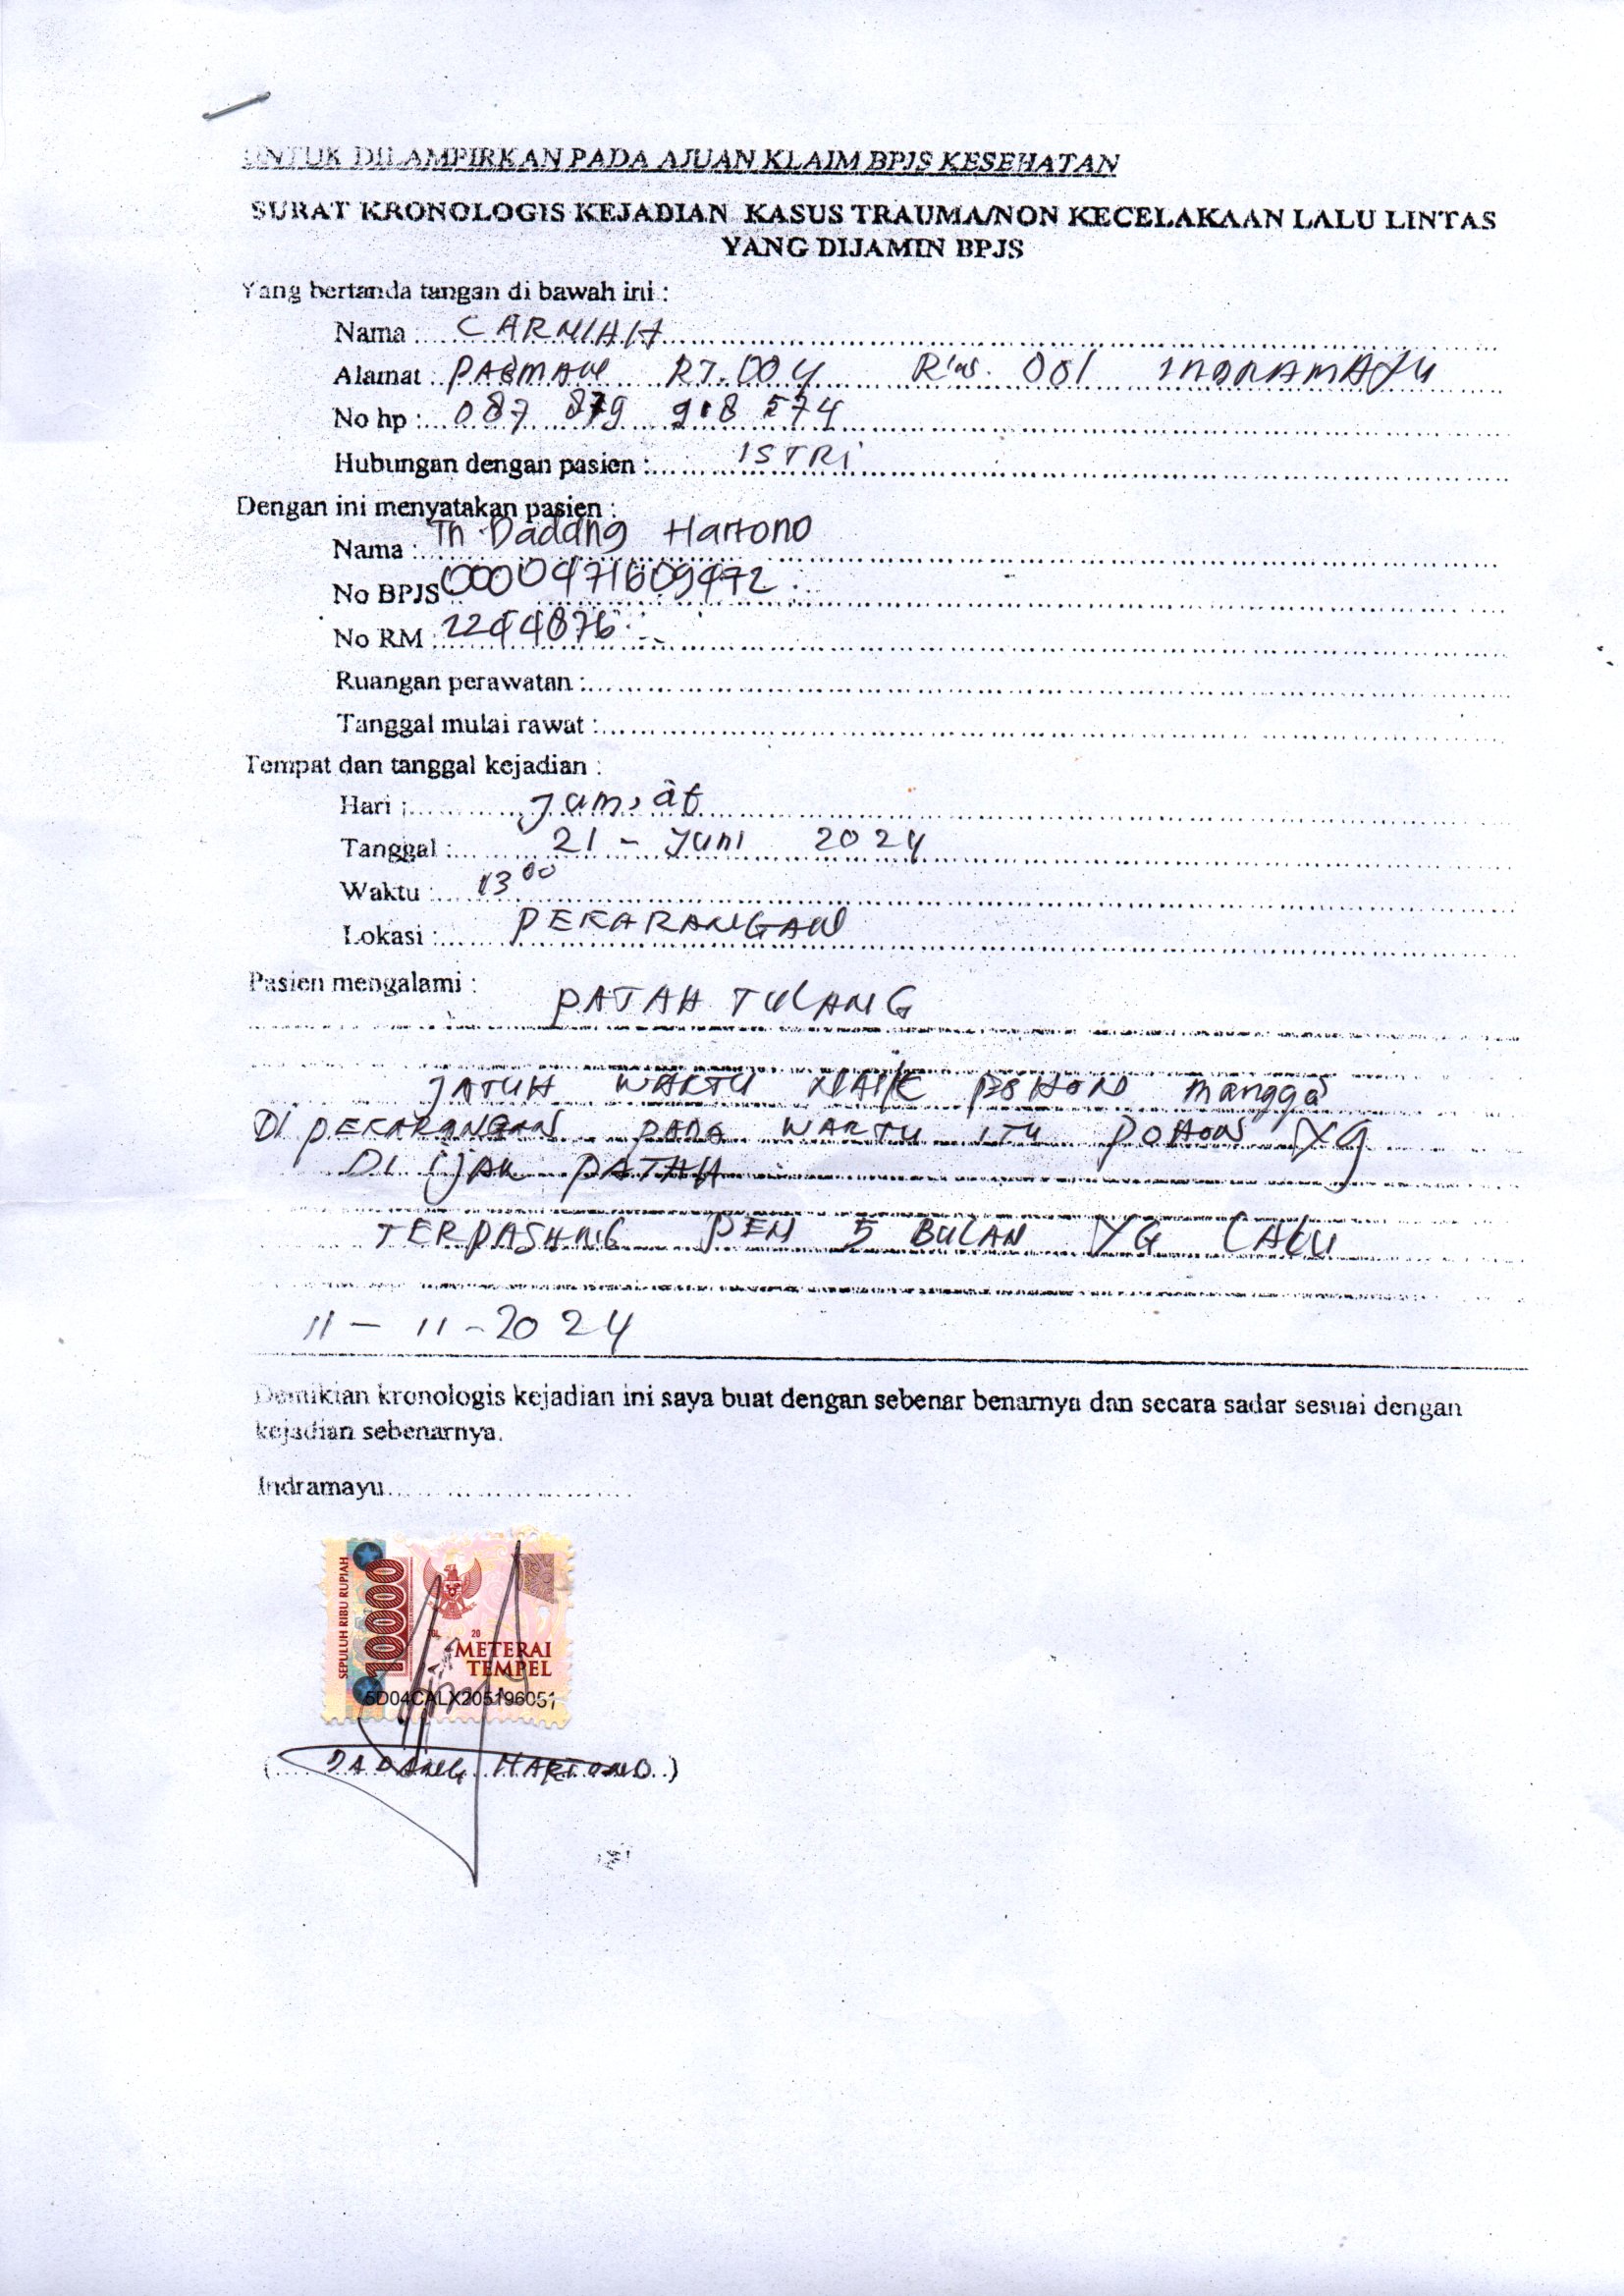 UNTUK DILAMPIRKAN PADA AJUAN KLAIM BPJS KESEHATAN
SURAT KRONOLOGIS KEJADIAN KASUS TRAUMA/NON KECELAKAAN LALU LINTAS
YANG DIJAMIN BPJS
Yang bertanda tangan di bawah ini :
Nama : CARNIAH
Alamat : RT. 004 RW. 001 INDRAMAYU
No hp : 087 879 918 574
Hubungan dengan pasien : ISTRI
Dengan ini menyatakan pasien :
Nama : Tn Dadang Hartono
No BPJS 0000471609472
No RM : 2244876
Ruangan perawatan :
Tanggal mulai rawat :
Tempat dan tanggal kejadian :
Hari : Jum,at
Tanggal : 21 - Juni 2024
Waktu : 13 00
Lokasi : PEKARANGAN
Pasien mengalami : PATAH TULANG
JATUH WAKTU NAIK POHON mangga
DI PEKARANGAN PADA WAKTU ITU POHON YG
DI IJAK PATAH
TERPASANG PEN 5 BULAN YG LALU
11 - 11 - 2024
Demikian kronologis kejadian ini saya buat dengan sebenar benarnya dan secara sadar sesuai dengan
kejadian sebenarnya.
Indramayu
SEPULUH RIBU RUPIAH
10000
TGL. 20
METERAI
TEMPEL
5D04CALX205196051
(DADANG HARTONO)